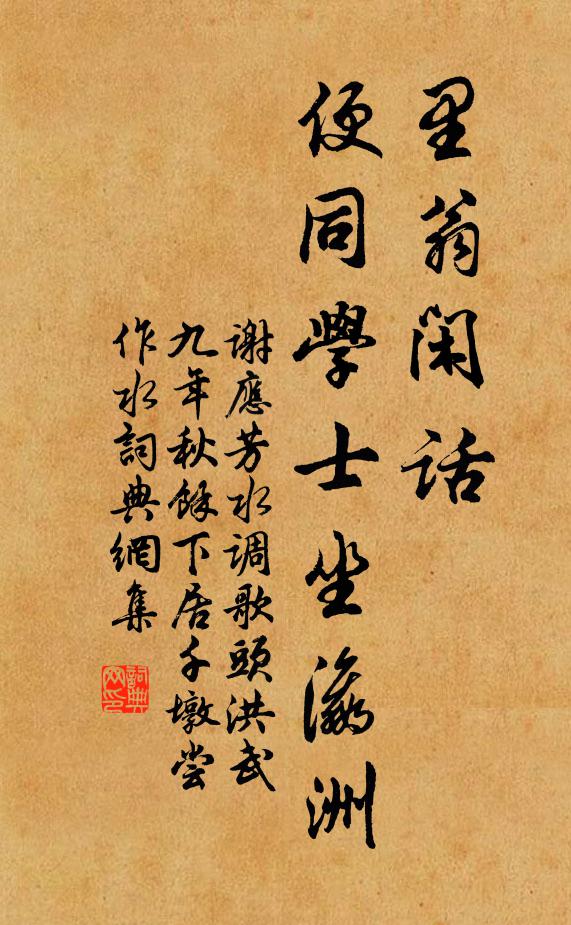 里翁闲話
便同學士坐瀛洲
谢應芳水调歌頭洪武
九年秋餘下居千墩尝
作水詞典網集
詞典
网印